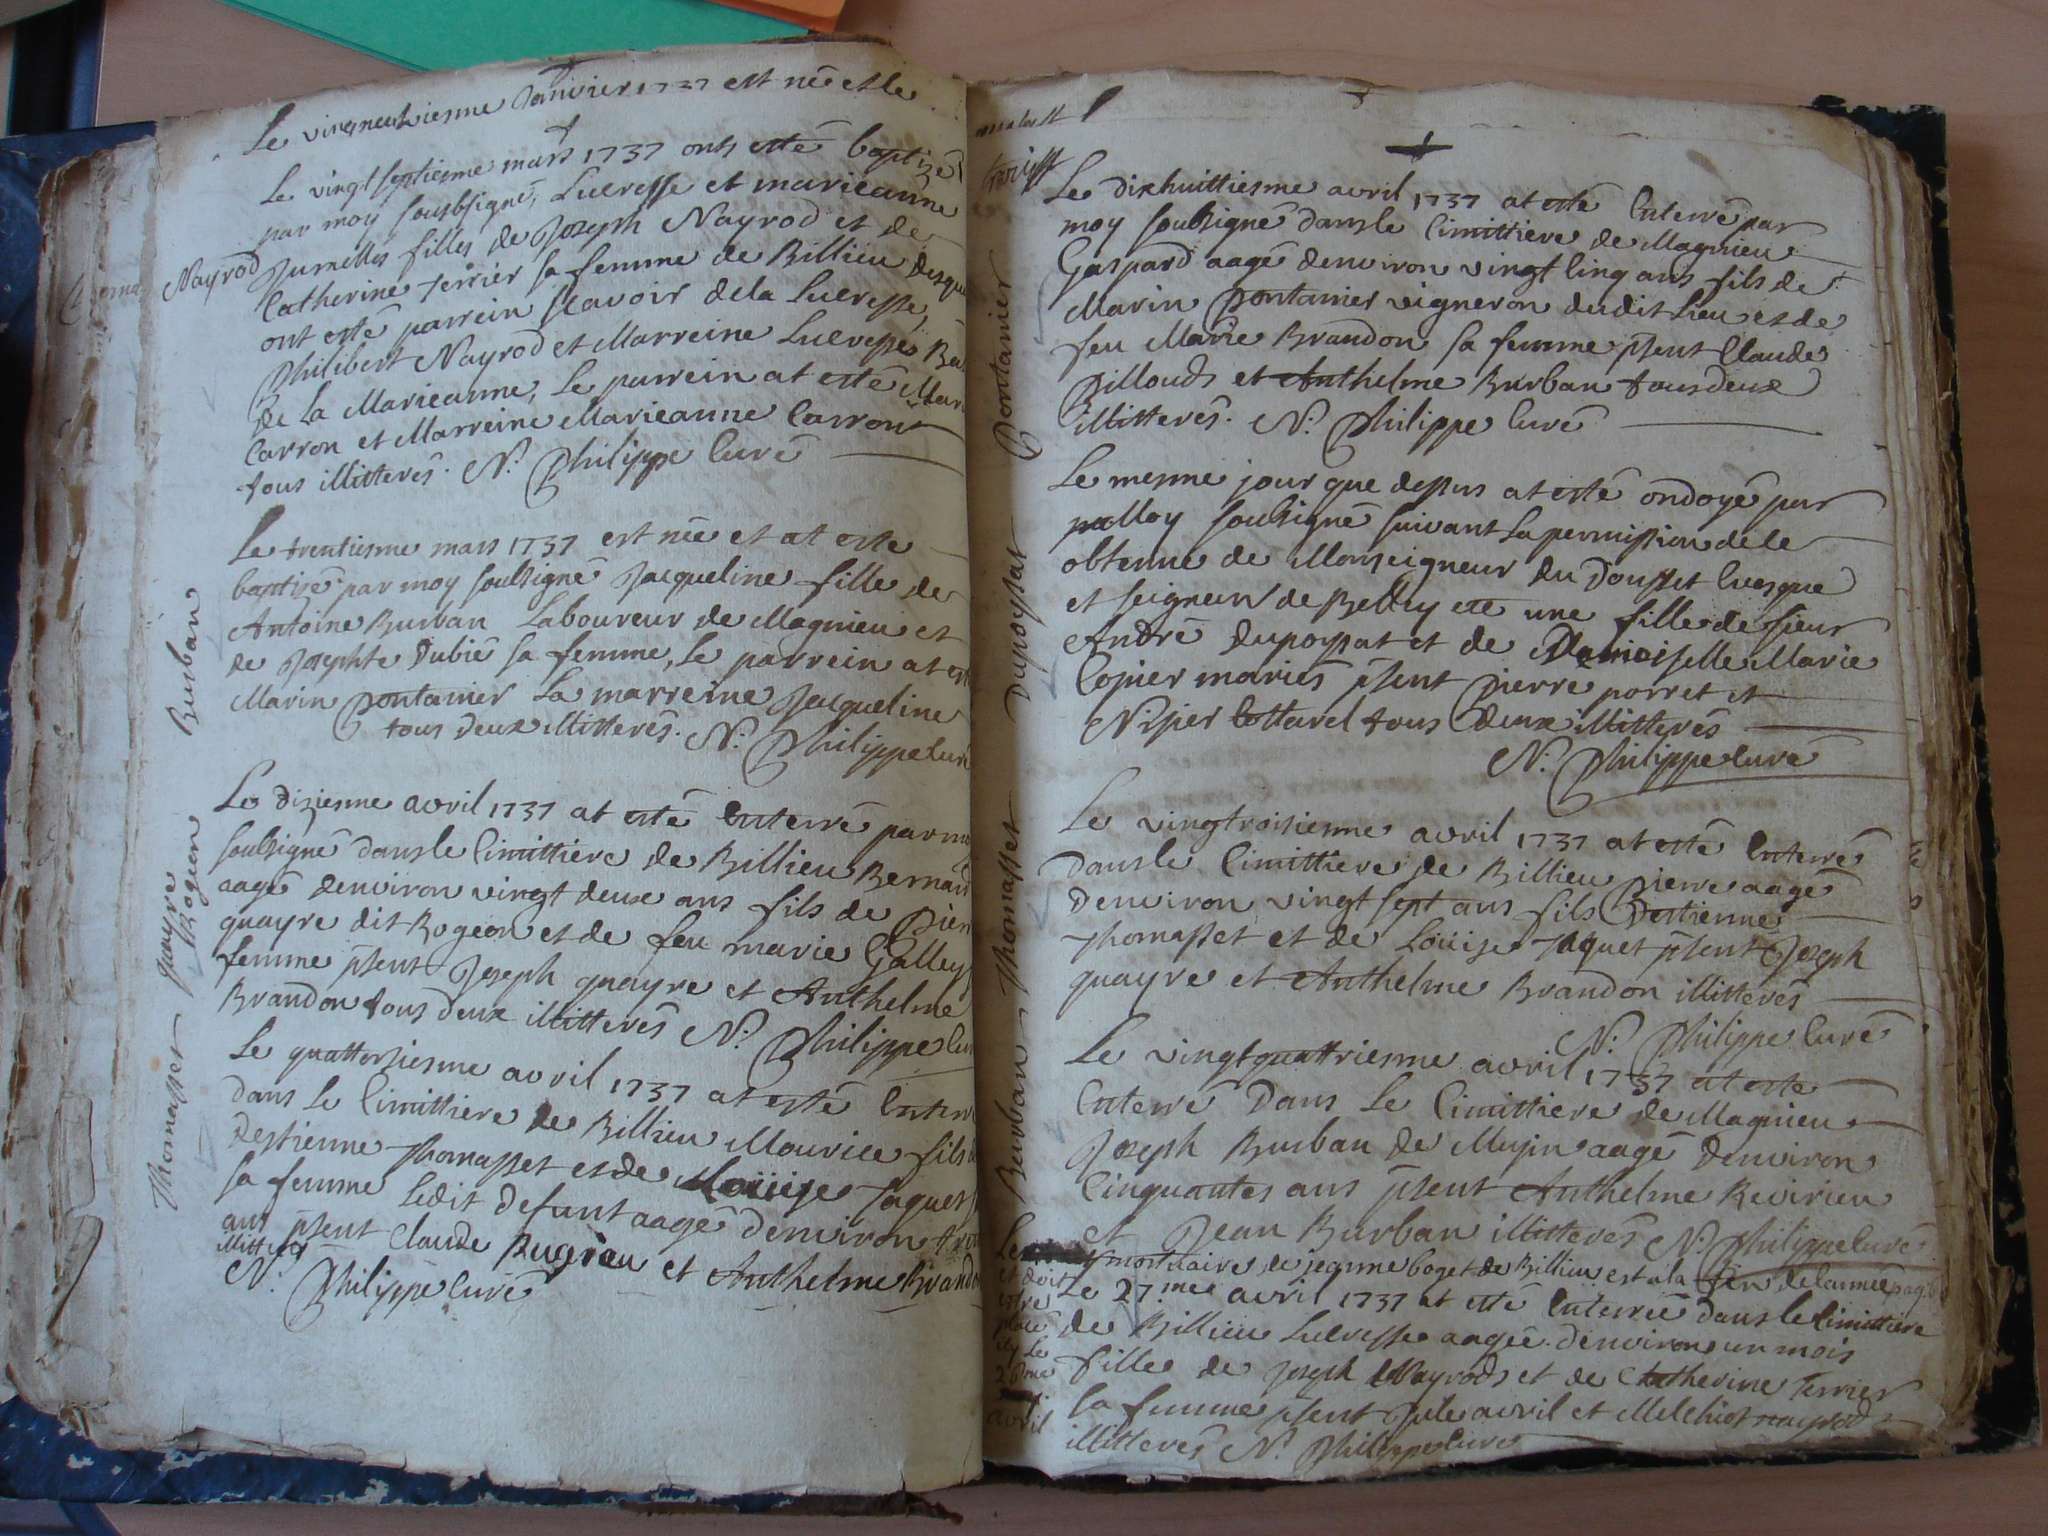 Le vingtneuviesme Janvier 1737 est née et le
Le vingt septiesme mars 1737 onts esté baptizé
par moy soubsigné, Lucresse et marieanne
Nayrod
Jumelles filles de Joseph Nayrod et de
Catherine terrier sa femme de Billieu desque
ont esté parrein scavoir dela Lucresse
Philibert Nayrod et Marreine Lucresse
de la Marieanne, le parrein at esté Mar
Carron et Marreine Marieanne Carron
tous illitterés. N. Philippe Curé
Burban
Le trentiesme mars 1737 est née et at esté
baptizé par moy soubsigné Jacqueline fille de
Antoine Burban Laboureur de Magnieu et
de Josephte Dubié sa femme, le parrein at est
Marin Pontanier La marreine Jacqueline
tous deux illitterés. N. Philippe Cur
quayre
Rogeon
Le dixiesme avril 1737 at esté Enterré par mo
soubsigné dans le Cimittiere de Billieu Bernard
aagé denviron vingt deux ans fils de Pier
quayre dit Rogeon et de feu marie Galley
femme pñsent Joseph quayre et Anthelme
Brandon tous deux illitterés N. Philippe Cur
Thomasset
Le quattorsiesme avril 1737 at esté Enterr
dans Le Cimittiere de Billieu Maurice fils
Destienne Thomasset et de Loüise Jaquet
sa femme Ledit defunt aagé denviron
ans pñsent Claude Bugeau et Anthelme Brando
illitterés
N. Philippe Curé
Pontanier
Le dixhuittiesme avril 1737 at esté Enterré par
moy soubsigné dans le Cimittiere de Magnieu
Gaspard aagé denviron vingt Cinq ans fils de
Marin Pontanier vigneron dudit Lieu et de
feu Marie Brandon sa femme pñsent Claude
Pillouds et Anthelme Burban tous deux
illitterés. N. Philippe Curé
Dupoyssat
Le mesme jour que dessus at esté ondoyé par
Moy soubsigné suivant La permission de le
obtenue de Monseigneur du Dousset Evesque
et seigneur de Belley etc une fille de sieur
André Dupoyssat et de Damoiselle Marie
Copier mariés pñsent Pierre porret et
Nizier Cottarel tous deux illitterés
N. Philippe Curé
Thomasset
Le vingtroisiesme avril 1737 at esté Enterré
dans le Cimittiere de Billieu Pierre aagé
denviron vingt sept ans fils Destienne
Thomasset et de Loüise Jaquet pñsent Joseph
quayre et Anthelme Brandon illitterés
N. Philippe Curé
Burban
Le vingtquattriesme avril 1737 at esté
Enterré Dans Le Cimittiere de Magnieu
Joseph Burban de Mujin aagé denviron
Cinquantes ans pñsent Anthelme Revirieu
et Jean Burban illitterés N. Philippe Curé
Le mortuaire de jeanne boget de Billieu est a la fin de lannée pag
et doit
estre
placé
icy Le
avril
Le 27.me avril 1737 at esté Enterrée dans le Cimittiere
de Billieu Lucresse aagée denviron un mois
fille de Joseph Nayrods et de Catherine Terrier
sa femme pñsent Jule avril et Melchiot nayrods
illitterés N. Philippe Curé